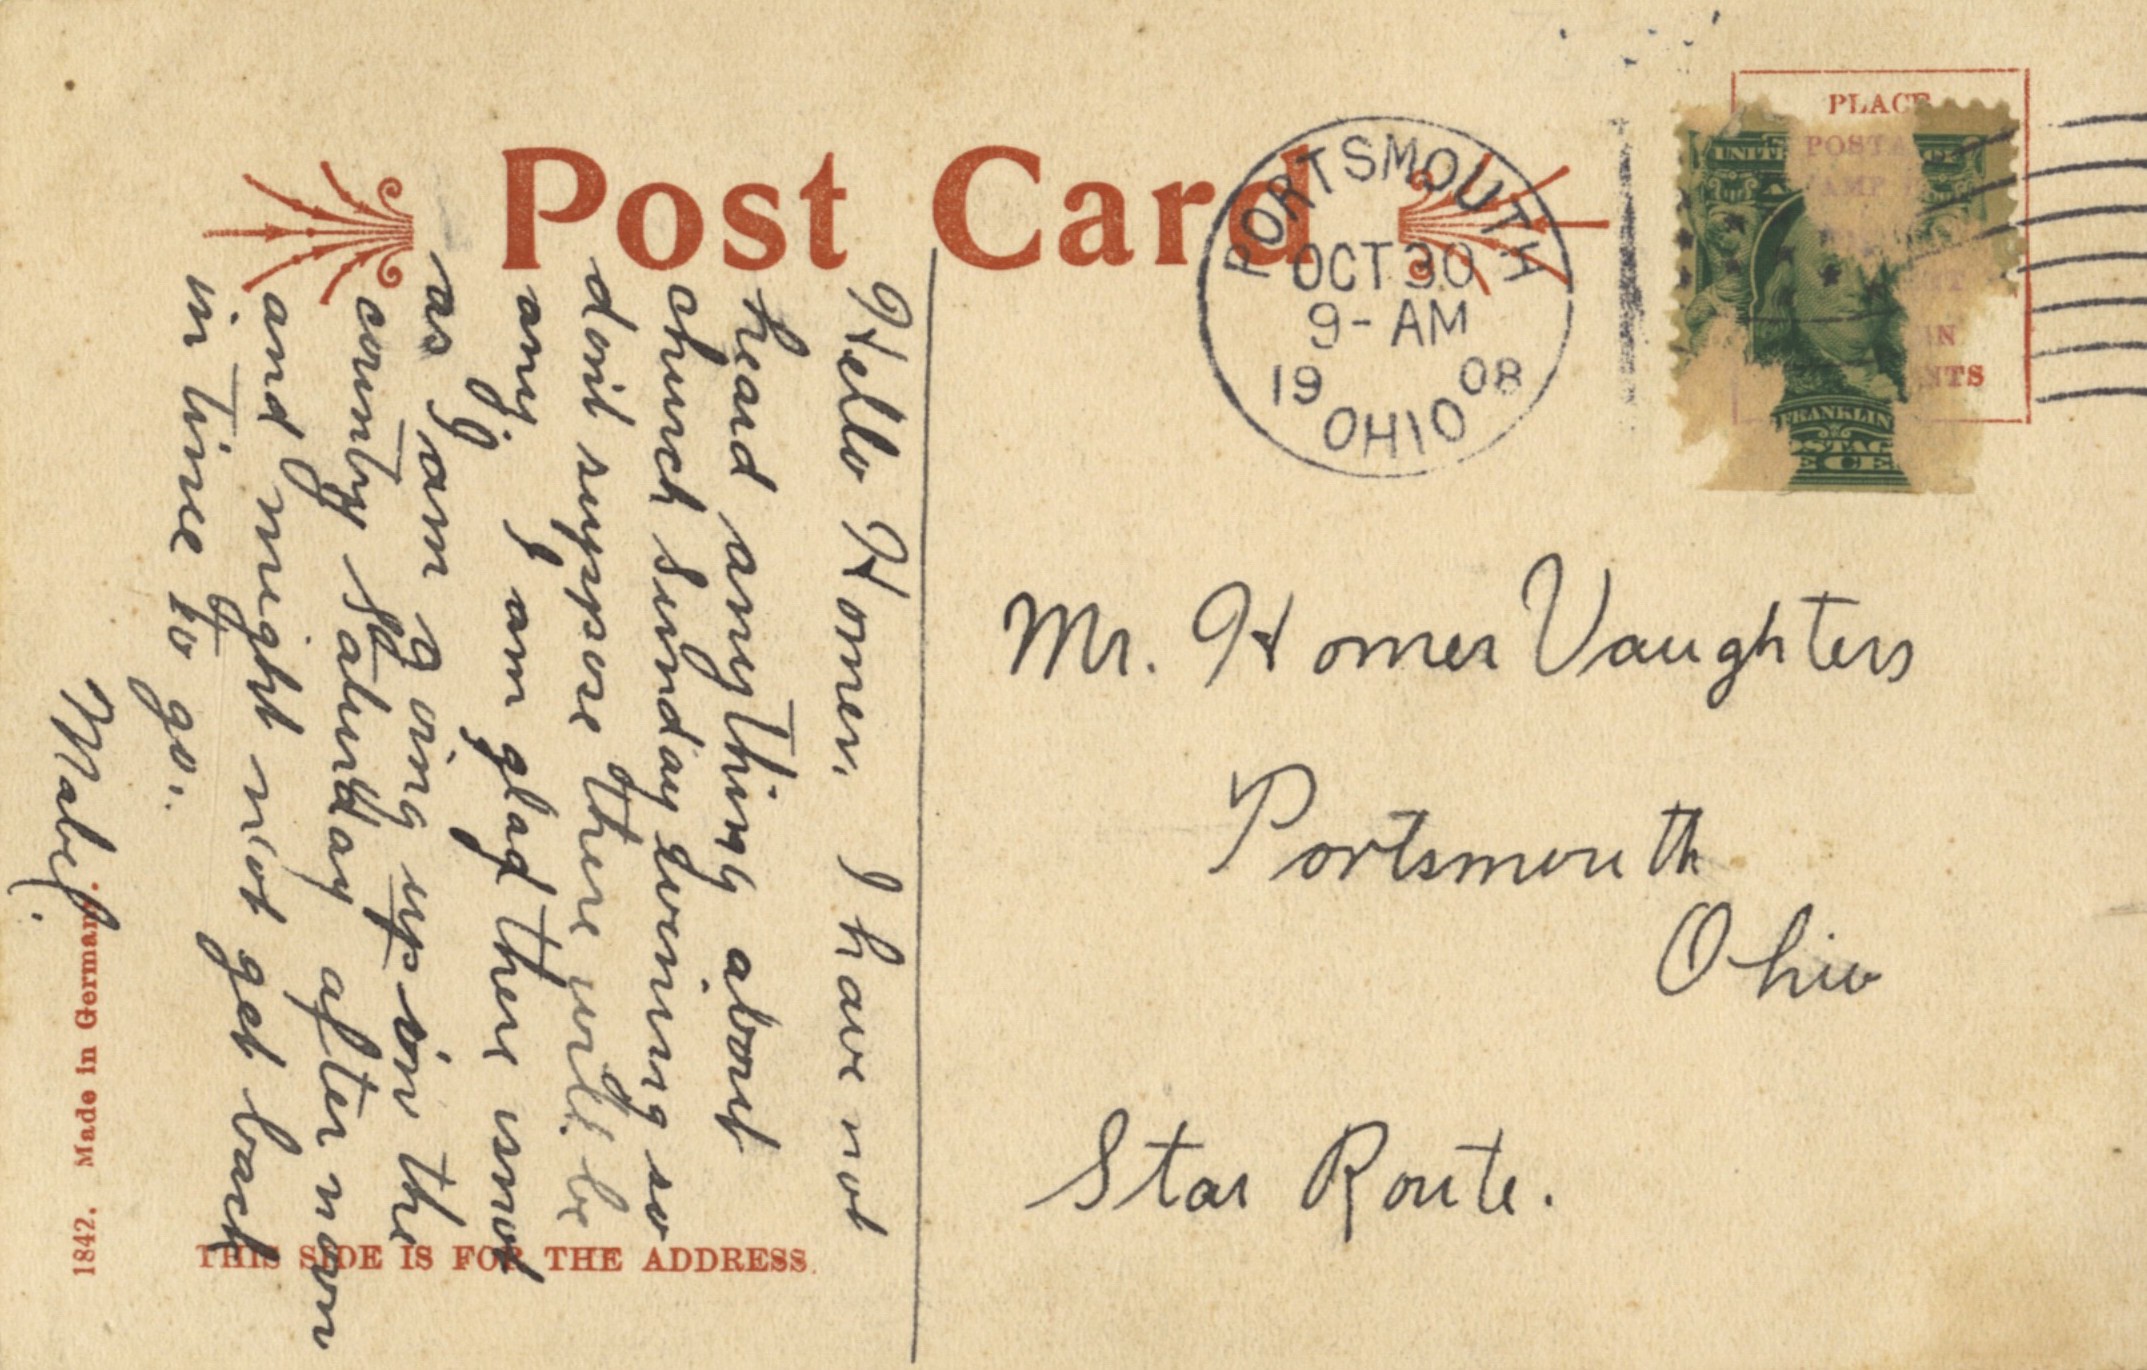 Post Card
PORTSMOUTH
OCT 30
9-AM
19 08
OHIO
PLACE
POSTA
AMP
IN
NTS
UNITE
FRANKLIN
Hello Homer, I have not
heard any thing about
church Sunday evening so
dont suppose there will be
any. I am glad there isnot
as I am going up in the
county Saturday after noon
and might not get back
in time to go.
Mabel.
Mr. Homer Vaughters
Portsmouth
Ohio
Star Route.
THIS SIDE IS FOR THE ADDRESS
1842. Made in Germany.